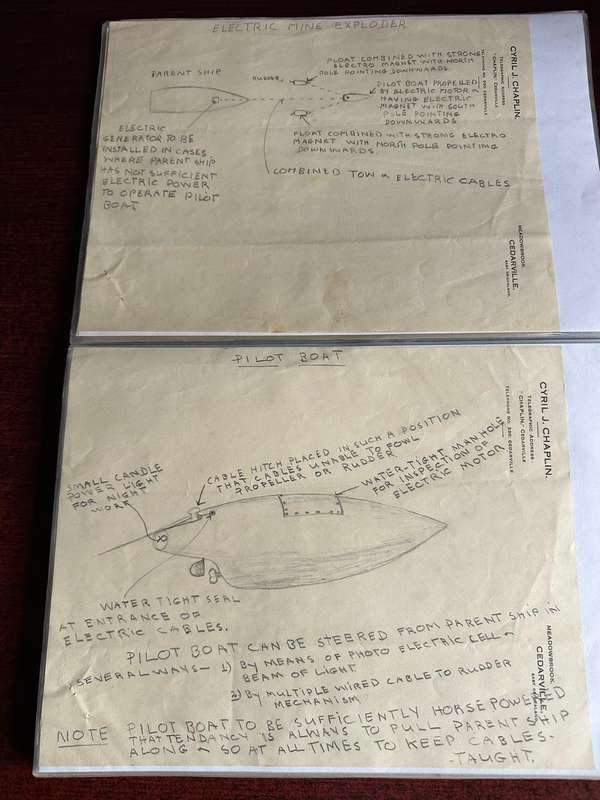 ELECTRIC MINE EXPLODER
FLOAT COMBINED WITH STRONG
ELECTRO MAGNET WITH NORTH
POLE POINTING DOWNWARDS.
RUDDER
PARENT SHIP
PILOT BOAT PROPELLED
BY ELECTRIC MOTOR &
HAVING ELECTRIC
MAGNET WITH SOUTH
POLE POINTING
DOWNWARDS
FLOAT COMBINED WITH STRONG ELECTRO
MAGNET WITH NORTH POLE POINTING
DOWNWARDS.
COMBINED TOW & ELECTRIC CABLES
ELECTRIC
GENERATOR TO BE
INSTALLED IN CASES
WHERE PARENT SHIP
HAS NOT SUFFICIENT
ELECTRIC POWER
TO OPERATE PILOT
BOAT
CYRIL J. CHAPLIN.
TELEGRAPHIC ADDRESS
"CHAPLIN" CEDARVILLE
TELEPHONE NO. 230, CEDARVILLE
MEADOWBROOK,
CEDARVILLE,
PILOT BOAT
CABLE HITCH PLACED IN SUCH A POSITION
THAT CABLES UNABLE TO FOWL
PROPELLER OR RUDDER
WATER-TIGHT MANHOLE
FOR INSPECTION OF
ELECTRIC MOTOR
SMALL CANDLE
POWER LIGHT
FOR NIGHT
WORK
WATER TIGHT SEAL
AT ENTRANCE OF
ELECTRIC CABLES.
PILOT BOAT CAN BE STEERED FROM PARENT SHIP IN
SEVERAL WAYS- 1) BY MEANS OF PHOTO ELECTRIC CELL &
BEAM OF LIGHT
2) BY MULTIPLE WIRED CABLE TO RUDDER
MECHANISM
NOTE PILOT BOAT TO BE SUFFICIENTLY HORSEPOWERED
THAT TENDANCY IS ALWAYS TO PULL PARENT SHIP
ALONG & SO AT ALL TIMES TO KEEP CABLES-
-TAUGHT.
CYRIL J. CHAPLIN.
TELEGRAPHIC ADDRESS
"CHAPLIN" CEDARVILLE
TELEPHONE NO. 230, CEDARVILLE
MEADOWBROOK,
CEDARVILLE,